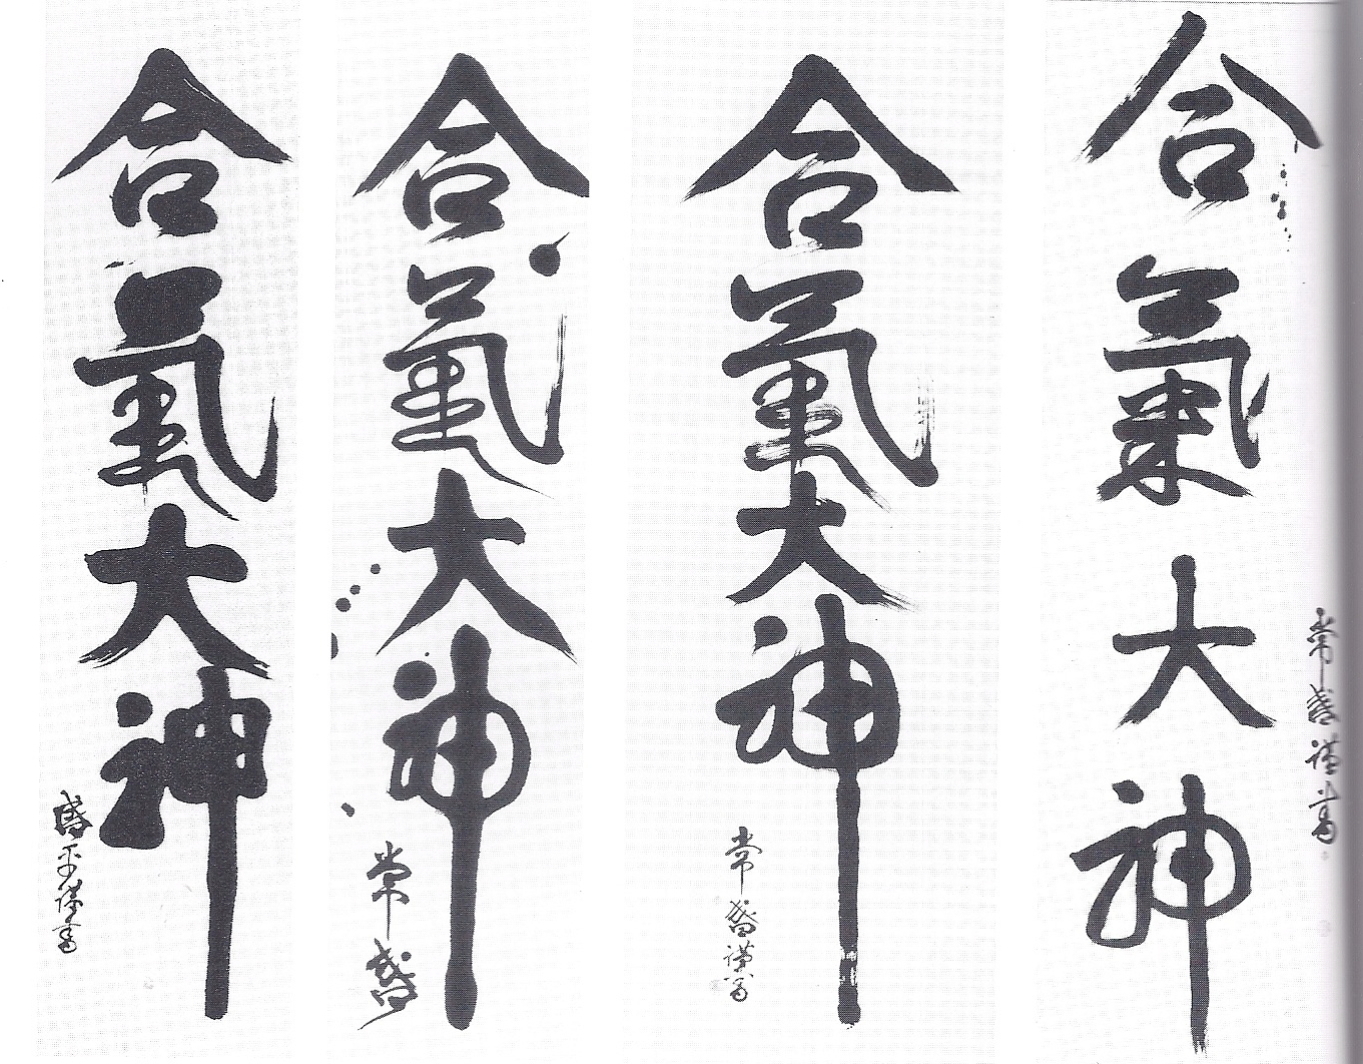 合氣大神
常盛謹書
合氣大神
常盛謹書
合氣大神
常盛
合氣大神
盛平謹書